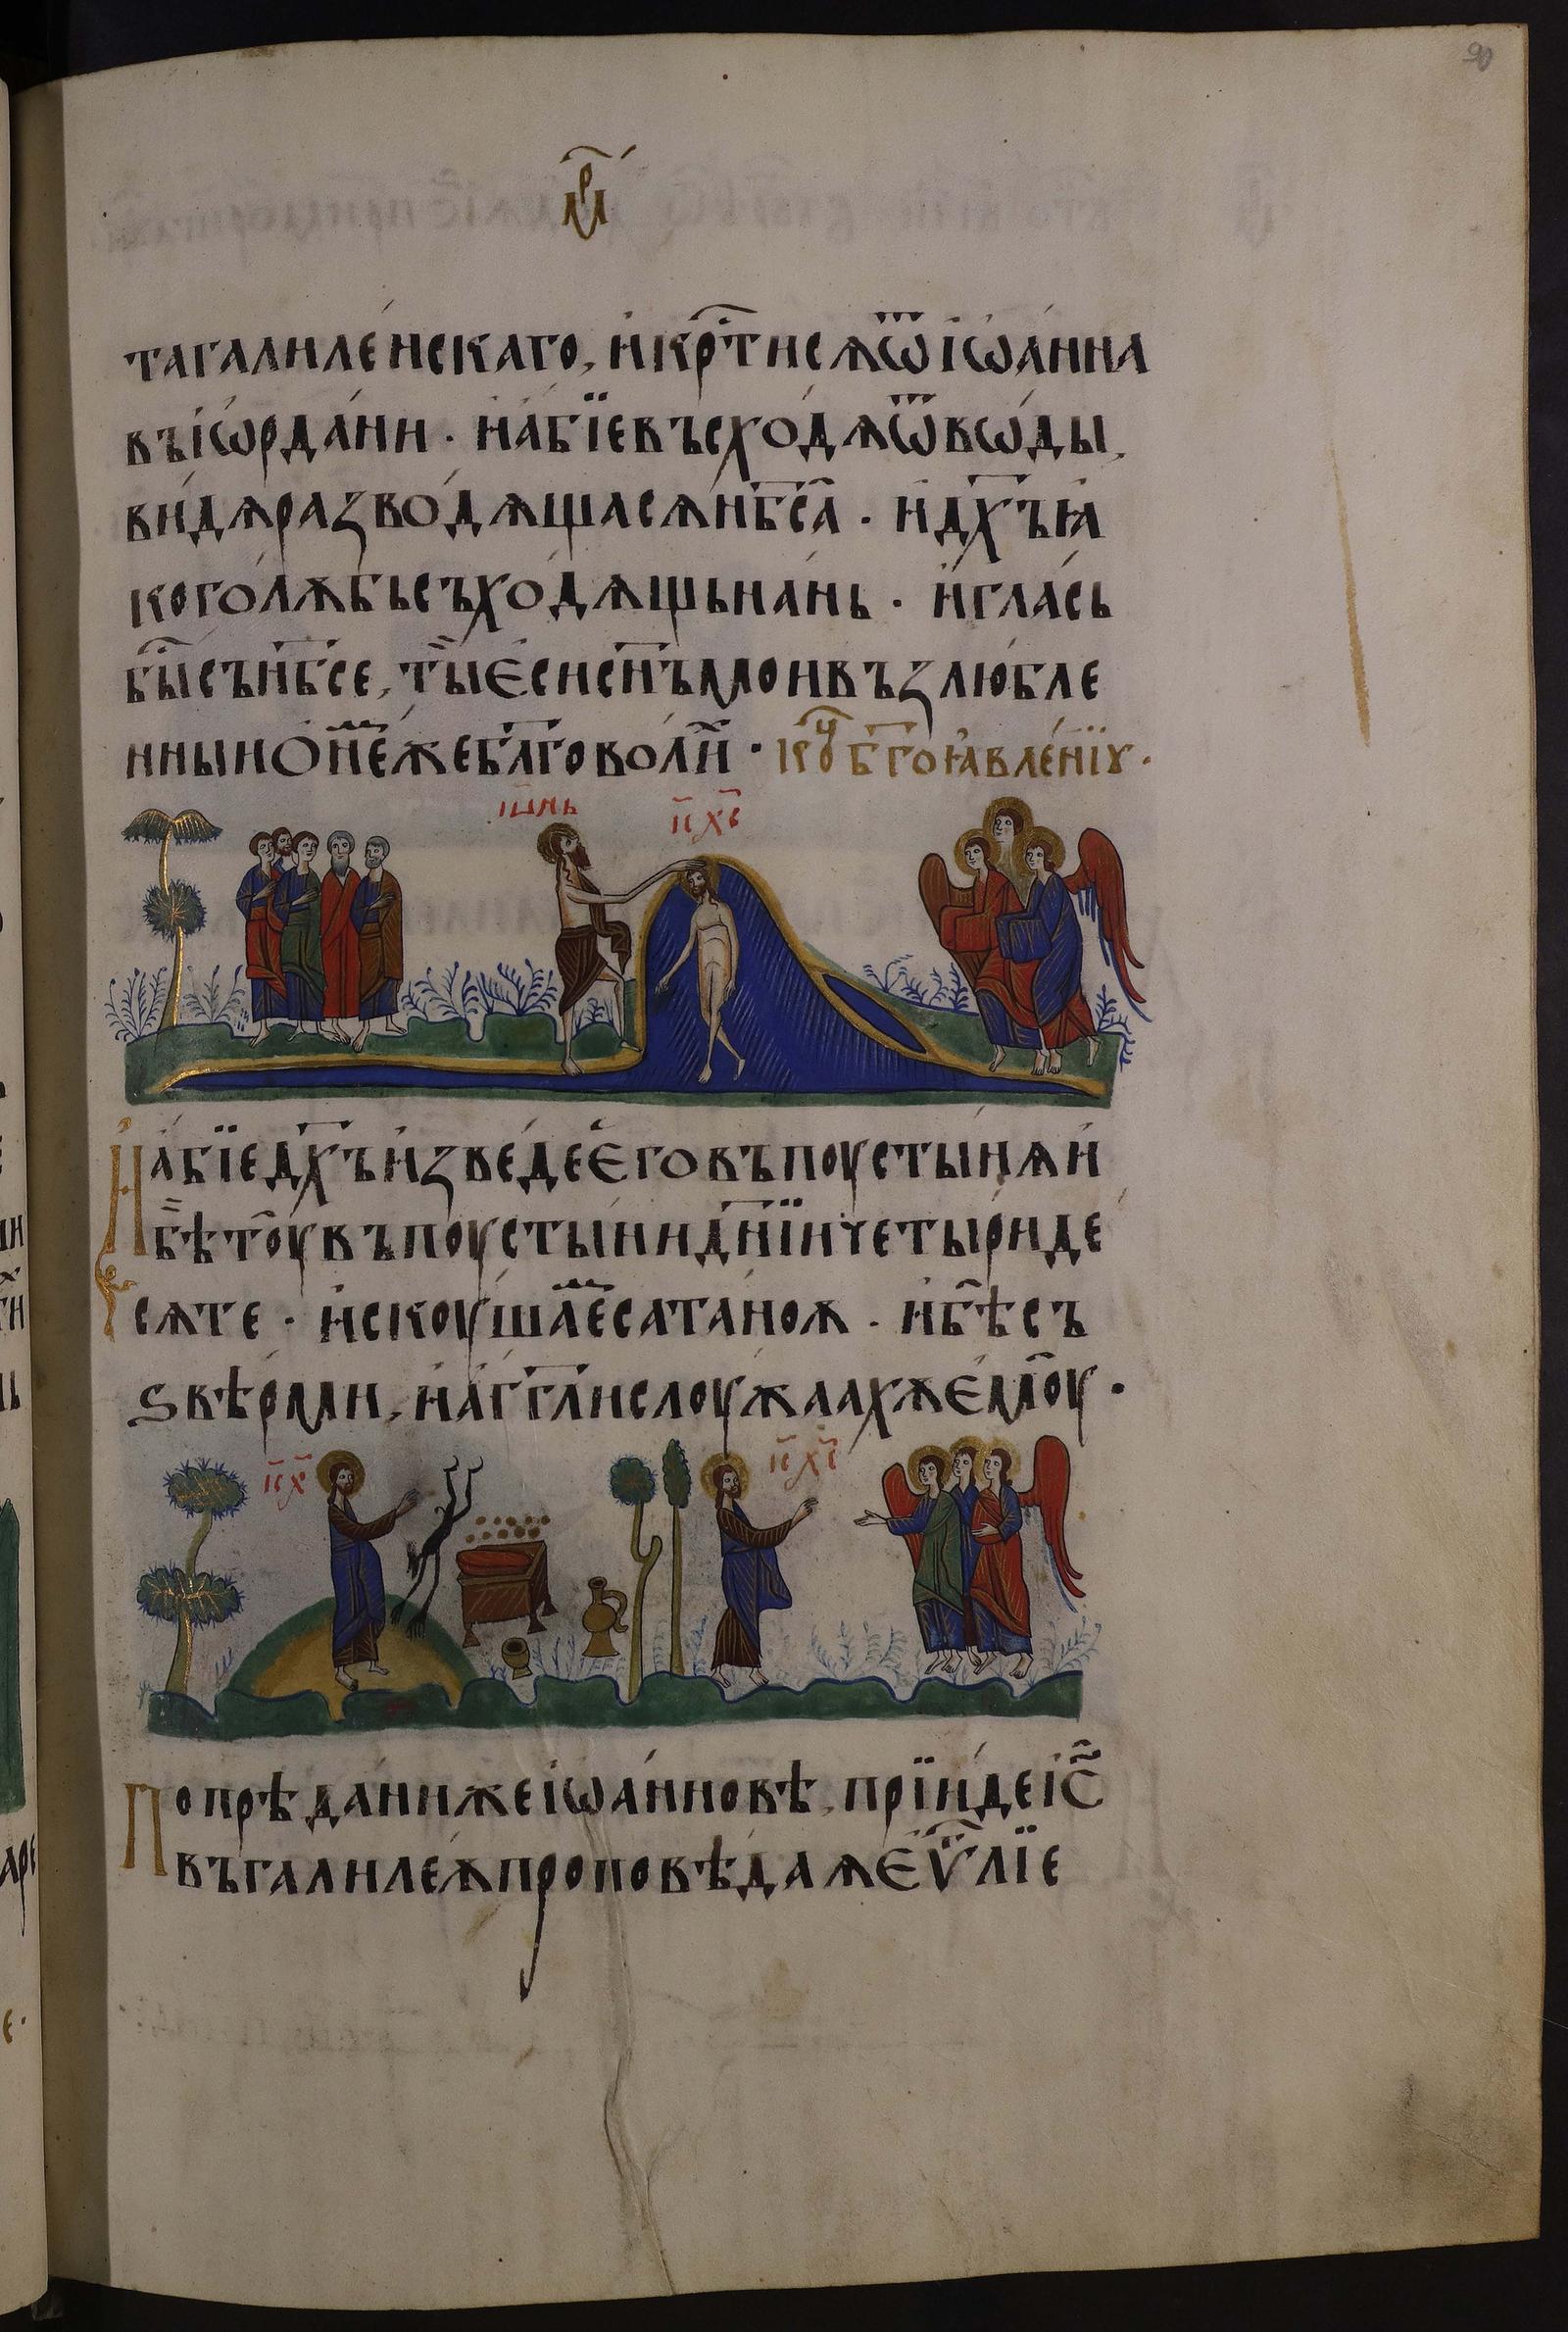 90
мр҃
тагалиле́искаго, и҆кр҃тисѧѿіѡ҆а́нна
въіѡ҆рда́ни · и҆а҆бїевъсхо́дѧѿвѡ́ды,
ви́дѧразво́дѧщасѧнб҃са̀ · и҆дх҃ъꙗ҆
коголѫбьсъхо́дѧщьна́нь · и҆гла́сь
бы̑сънб҃се, ты̀є҆сисн҃ъмоивъзлю́бле
нныиѺн҄емжебл҃говоли́х · коц҃б҃гоꙗ҆вле́нїꙋ ·
іѡ҃нь
і҃с х҃с
И҆а҆бїедх҃ъи҆зве́деє҆говъпоусты́нѫи҆
бѣ̀тоу̀въпоусты́нидн҃їичеты́риде
сѧте · и҆скоуша́емсатано́ѫ · и҆бѣ̀съ
ѕвѣ́рми, и҆а҆гг҃лислоужаахѫє҆моу̀ ·
і҃с х҃
і҃с х҃с
Попрѣда́нижеіѡ҆а́нновѣ, прїи́деіс҃
въгалиле́ѫпроповѣ́даѧє҆ѵ҃лїе